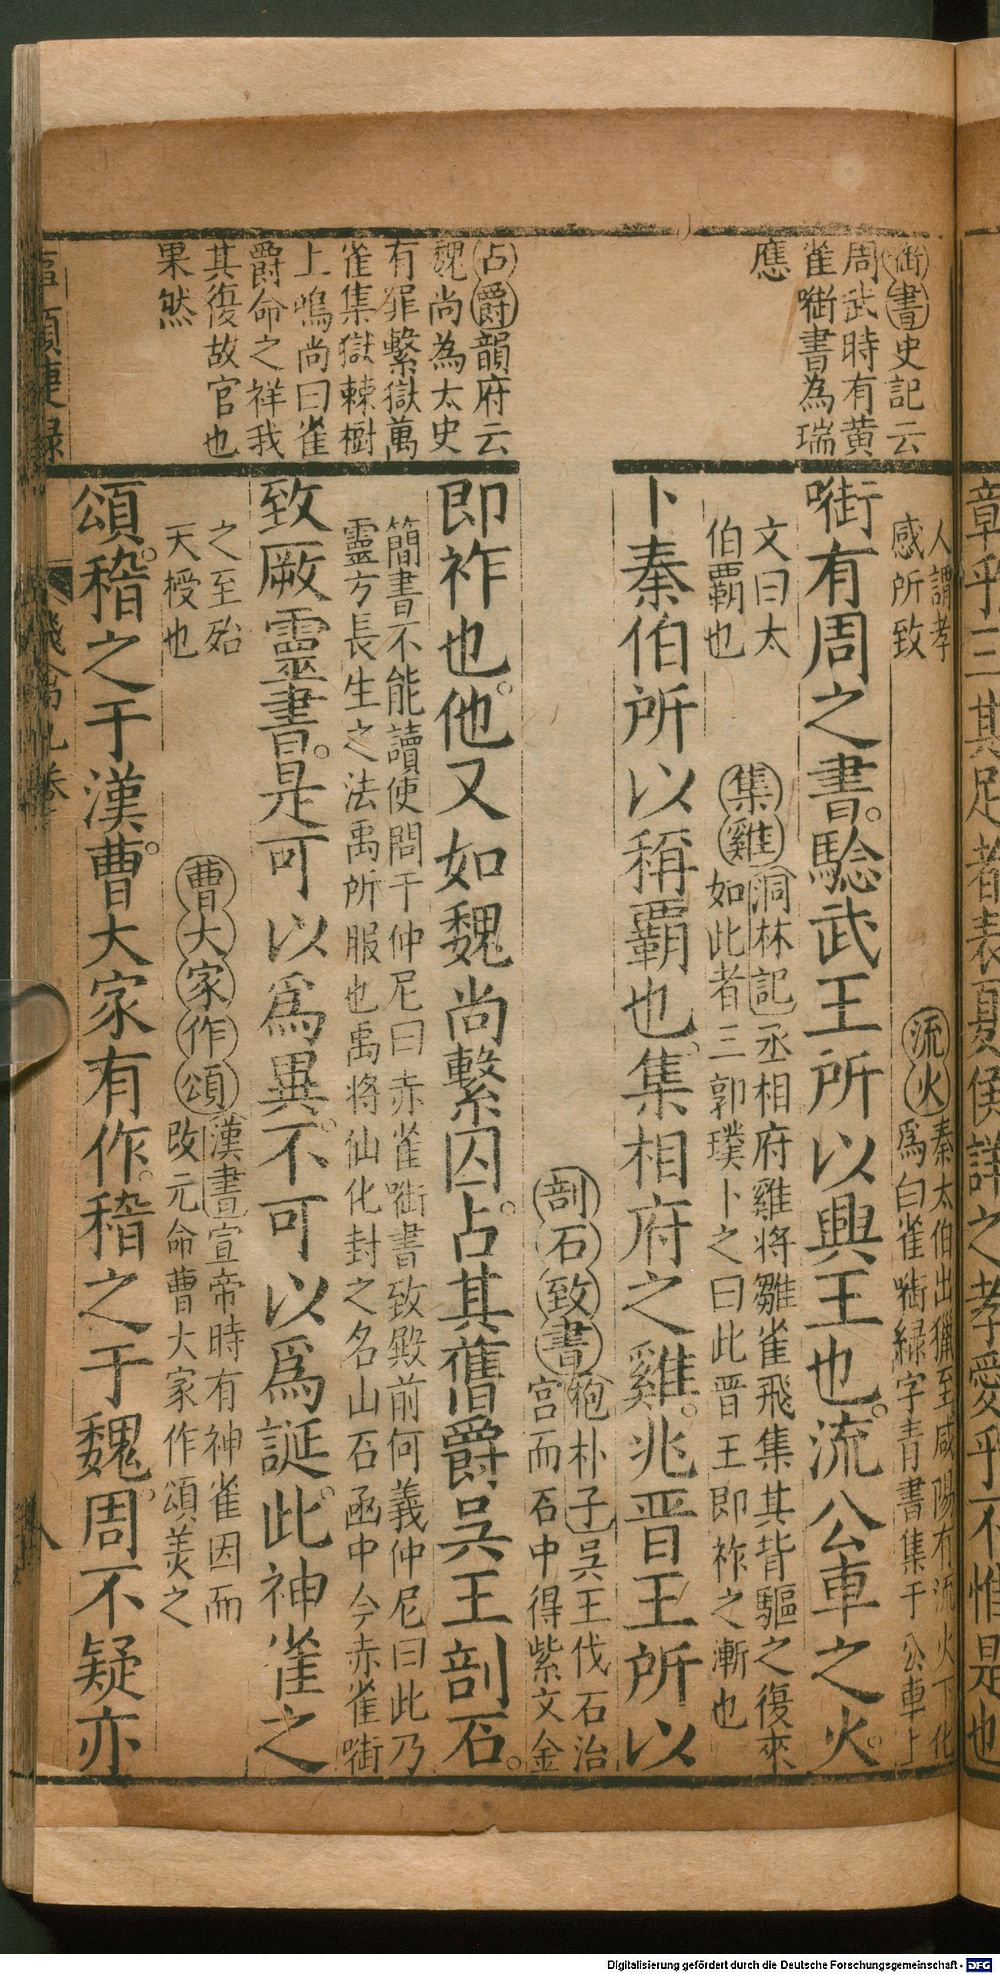 章乎三其足者表夏侯詳之孝愛乎不惟是也
啣書史記云
周武時有黄
雀啣書為瑞
應
占爵韻府云
魏尚為太史
有罪繫獄萬
雀集獄棘樹
上鳴尚曰雀
爵命之祥我
其復故官也
果然
人謂孝
感所致
流火秦太伯出獵至咸陽有流火下化
為白雀啣綠字青書集于公車上
啣有周之書。驗武王所以興王也。流公車之火。
文曰太
伯霸也
集雞洞林記丞相府雞将雛雀飛集其背驅之復來
如此者三郭璞卜之曰此晋王即祚之漸也
卜秦伯所以稱覇也。集相府之雞。兆晋王所以
剖石致書抱朴子吳王伐石治
宫而石中得紫文金
即祚也。他又如魏尚繫囚。占其舊爵吳王剖石。
簡書不能讀使問于仲尼曰赤雀啣書致殿前何義仲尼曰此乃
靈方長生之法禹所服也禹将仙化封之名山石函中今赤雀啣
致厥靈書。是可以爲異。不可以爲誕。此神雀之
之至殆
天授也
曹大家作頌漢書宣帝時有神雀因而
改元命曹大家作頌美之
頌。稽之于漢。曹大家有作。稽之于魏。周不疑亦
八
Digitalisierung gefördert durch die Deutsche Forschungsgemeinschaft - DFG